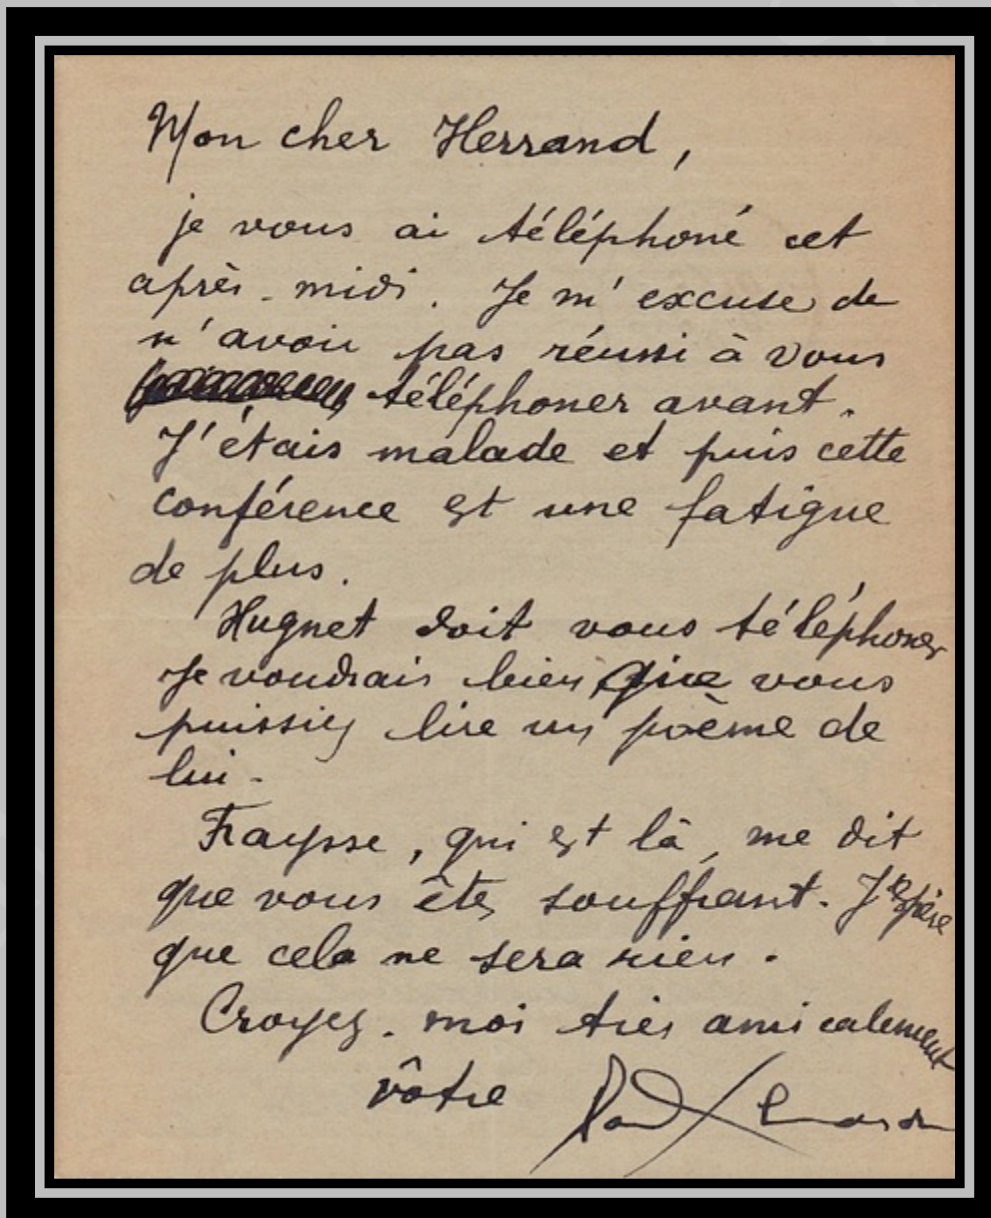 Mon cher Herrand,
je vous ai téléphoné cet
après-midi. Je m'excuse de
n'avoir pas réussi à vous
téléphoner avant.
J'étais malade et puis cette
conférence est une fatigue
de plus.
Hugnet doit vous téléphoner
Je voudrais bien que vous
puissiez lire un poème de
lui.
Fraysse, qui est là, me dit
que vous êtes souffrant. J'espère
que cela ne sera rien.
Croyez-moi très amicalement
vôtre Paul Eluard